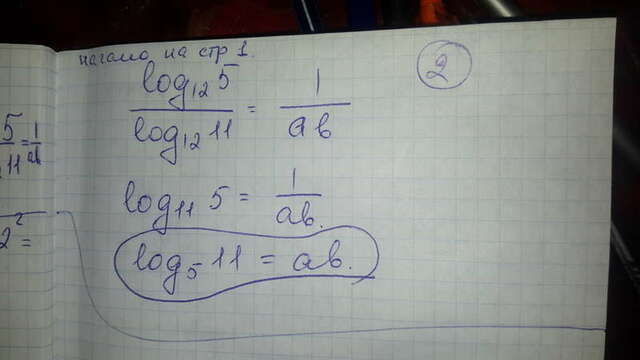 начало на стр 1.
2
log₁₂5 / log₁₂11 = 1 / ab
log₁₁ 5 = 1 / ab.
log₅ 11 = ab.
5
11 = 1 / ab
2² =